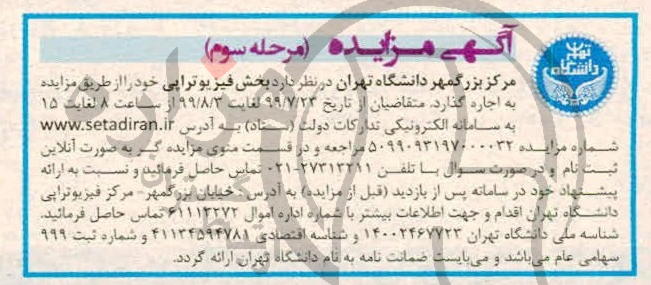 آگهی مزایده (مرحله سوم)
مرکز بزرگمهر دانشگاه تهران در نظر دارد بخش فیزیوتراپی خود را از طریق مزایده
به اجاره گذارد. متقاضیان از تاریخ ۹۹/۷/۲۳ لغایت ۹۹/۸/۳ از ساعت ۸ لغایت ۱۵
به سامانه الکترونیکی تدارکات دولت (ستاد) به آدرس www.setadiran.ir
شماره مزایده ۵۰۹۹۰۹۳۱۹۷۰۰۰۰۳۲ مراجعه و در قسمت منوی مزایده گر به صورت آنلاین
ثبت نام و در صورت سوال با تلفن ۲۷۳۱۳۲۱۱-۰۲۱ تماس حاصل فرمائید و نسبت به ارائه
پیشنهاد خود در سامانه پس از بازدید (قبل از مزایده) به آدرس - خیابان بزرگمهر- مرکز فیزیوتراپی
دانشگاه تهران اقدام و جهت اطلاعات بیشتر با شماره اداره اموال ۶۱۱۱۳۲۷۲ تماس حاصل فرمائید.
شناسه ملی دانشگاه تهران ۱۴۰۰۲۴۶۷۷۲۳ و شناسه اقتصادی ۴۱۱۳۴۵۹۴۷۸۱ و شماره ثبت ۹۹۹
سهامی عام می‌باشد و می‌بایست ضمانت نامه به نام دانشگاه تهران ارائه گردد.